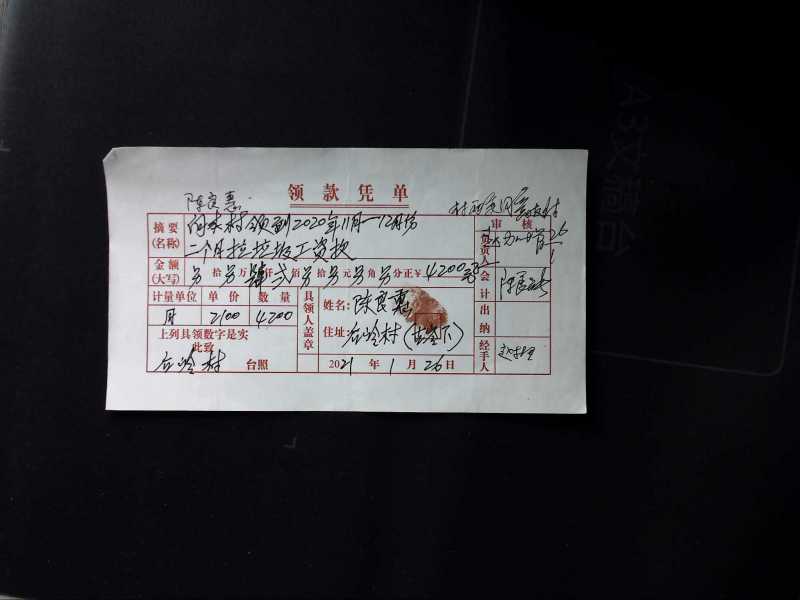 领款凭单
陈良惠
审核
摘要(名称) 向本村领到2020年11月—12月份
二个月拉垃圾工资款
负责人 26/1
金额(大写) 拾 万 仟肆 佰贰 拾 元 角 分正¥4200元
会计
计量单位 单价 数量
月 2100 4200
具领人盖章
姓名:陈良惠
住址:石岭村
出纳
上列具领数字是实
此致
石岭村 台照
2021年1月26日
经手人
A3文稿台